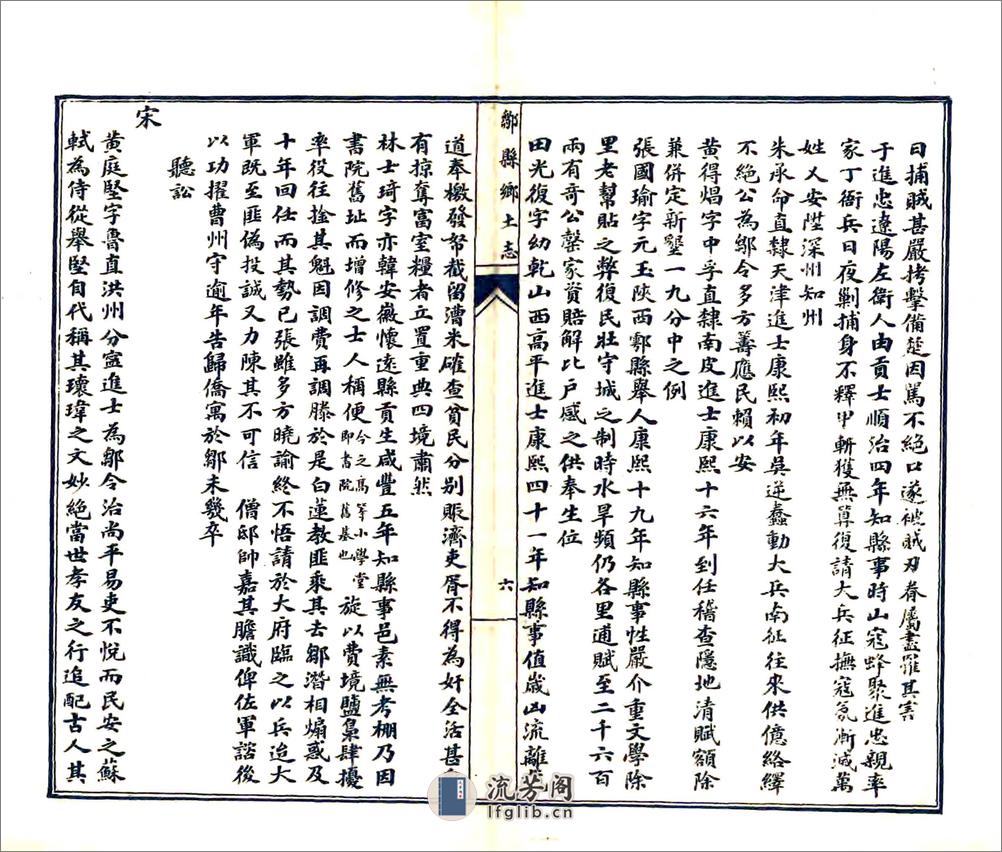 日捕賊甚嚴拷擊備楚因罵不絕口遂被賊刃眷屬盡罹其害
于進忠遼陽左衛人由貢士順治四年知縣事時山寇蜂聚進忠親率
家丁衙兵日夜剿捕身不釋甲斬獲無算復請大兵征撫寇氛漸減萬
姓乂安陞深州知州
朱承命直隸天津進士康熙初年吳逆蠢動大兵南征往來供億絡繹
不絕公為鄒令多方籌應民賴以安
黃得焻字中孚直隸南皮進士康熙十六年到任稽查隱地清賦額除
兼併定新墾一九分中之例
張國瑜字元玉陝西鄠縣舉人康熙十九年知縣事性嚴介重文學除
里老幫貼之弊復民壯守城之制時水旱頻仍各里逋賦至二千六百
兩有奇公罄家資賠解比戶感之供奉生位
田光復字幼乾山西高平進士康熙四十一年知縣事值歲凶流離
鄒縣鄉土志
六
道奉檄發帑截留漕米確查貧民分別賑濟吏胥不得為奸全活甚
有掠奪富室糧者立置重典四境肅然
林士琦字亦韓安徽懷遠縣貢生咸豐五年知縣事邑素無考棚乃因
書院舊址而增修之士人稱便今之高等小學堂即書院舊基也旋以費境鹽梟肆擾
率役往捨其魁因調費再調滕於是白蓮教匪乘其去鄒潛相煽惑及
十年回任而其勢已張雖多方曉諭終不悟請於大府臨之以兵迨大
軍既至匪偽投誠又力陳其不可信 僧邸帥嘉其膽識俾佐軍諮後
以功擢曹州守逾年告歸僑寓於鄒未幾卒
聽訟
宋
黃庭堅字魯直洪州分寧進士為鄒令治尚平易吏不悅而民安之蘇
軾為侍從舉堅自代稱其瓌瑋之文妙絕當世孝友之行追配古人其
流芳阁
lfglib.cn